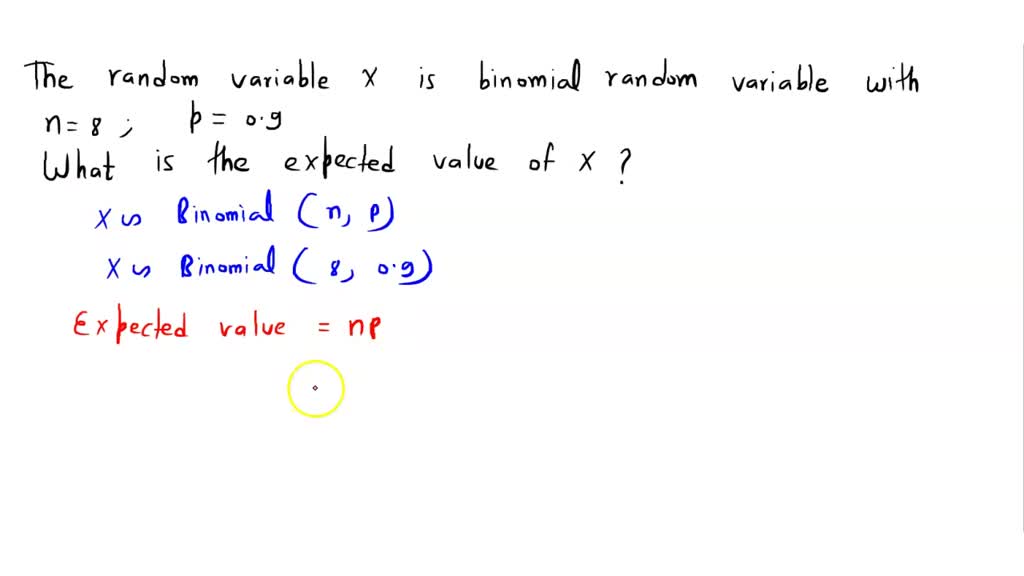 The random variable X is binomial random variable with
n=8; p = 0.9
What is the expected value of X ?
X ∽ Binomial (n, p)
X ∽ Binomial (8, 0.9)
Expected value = np